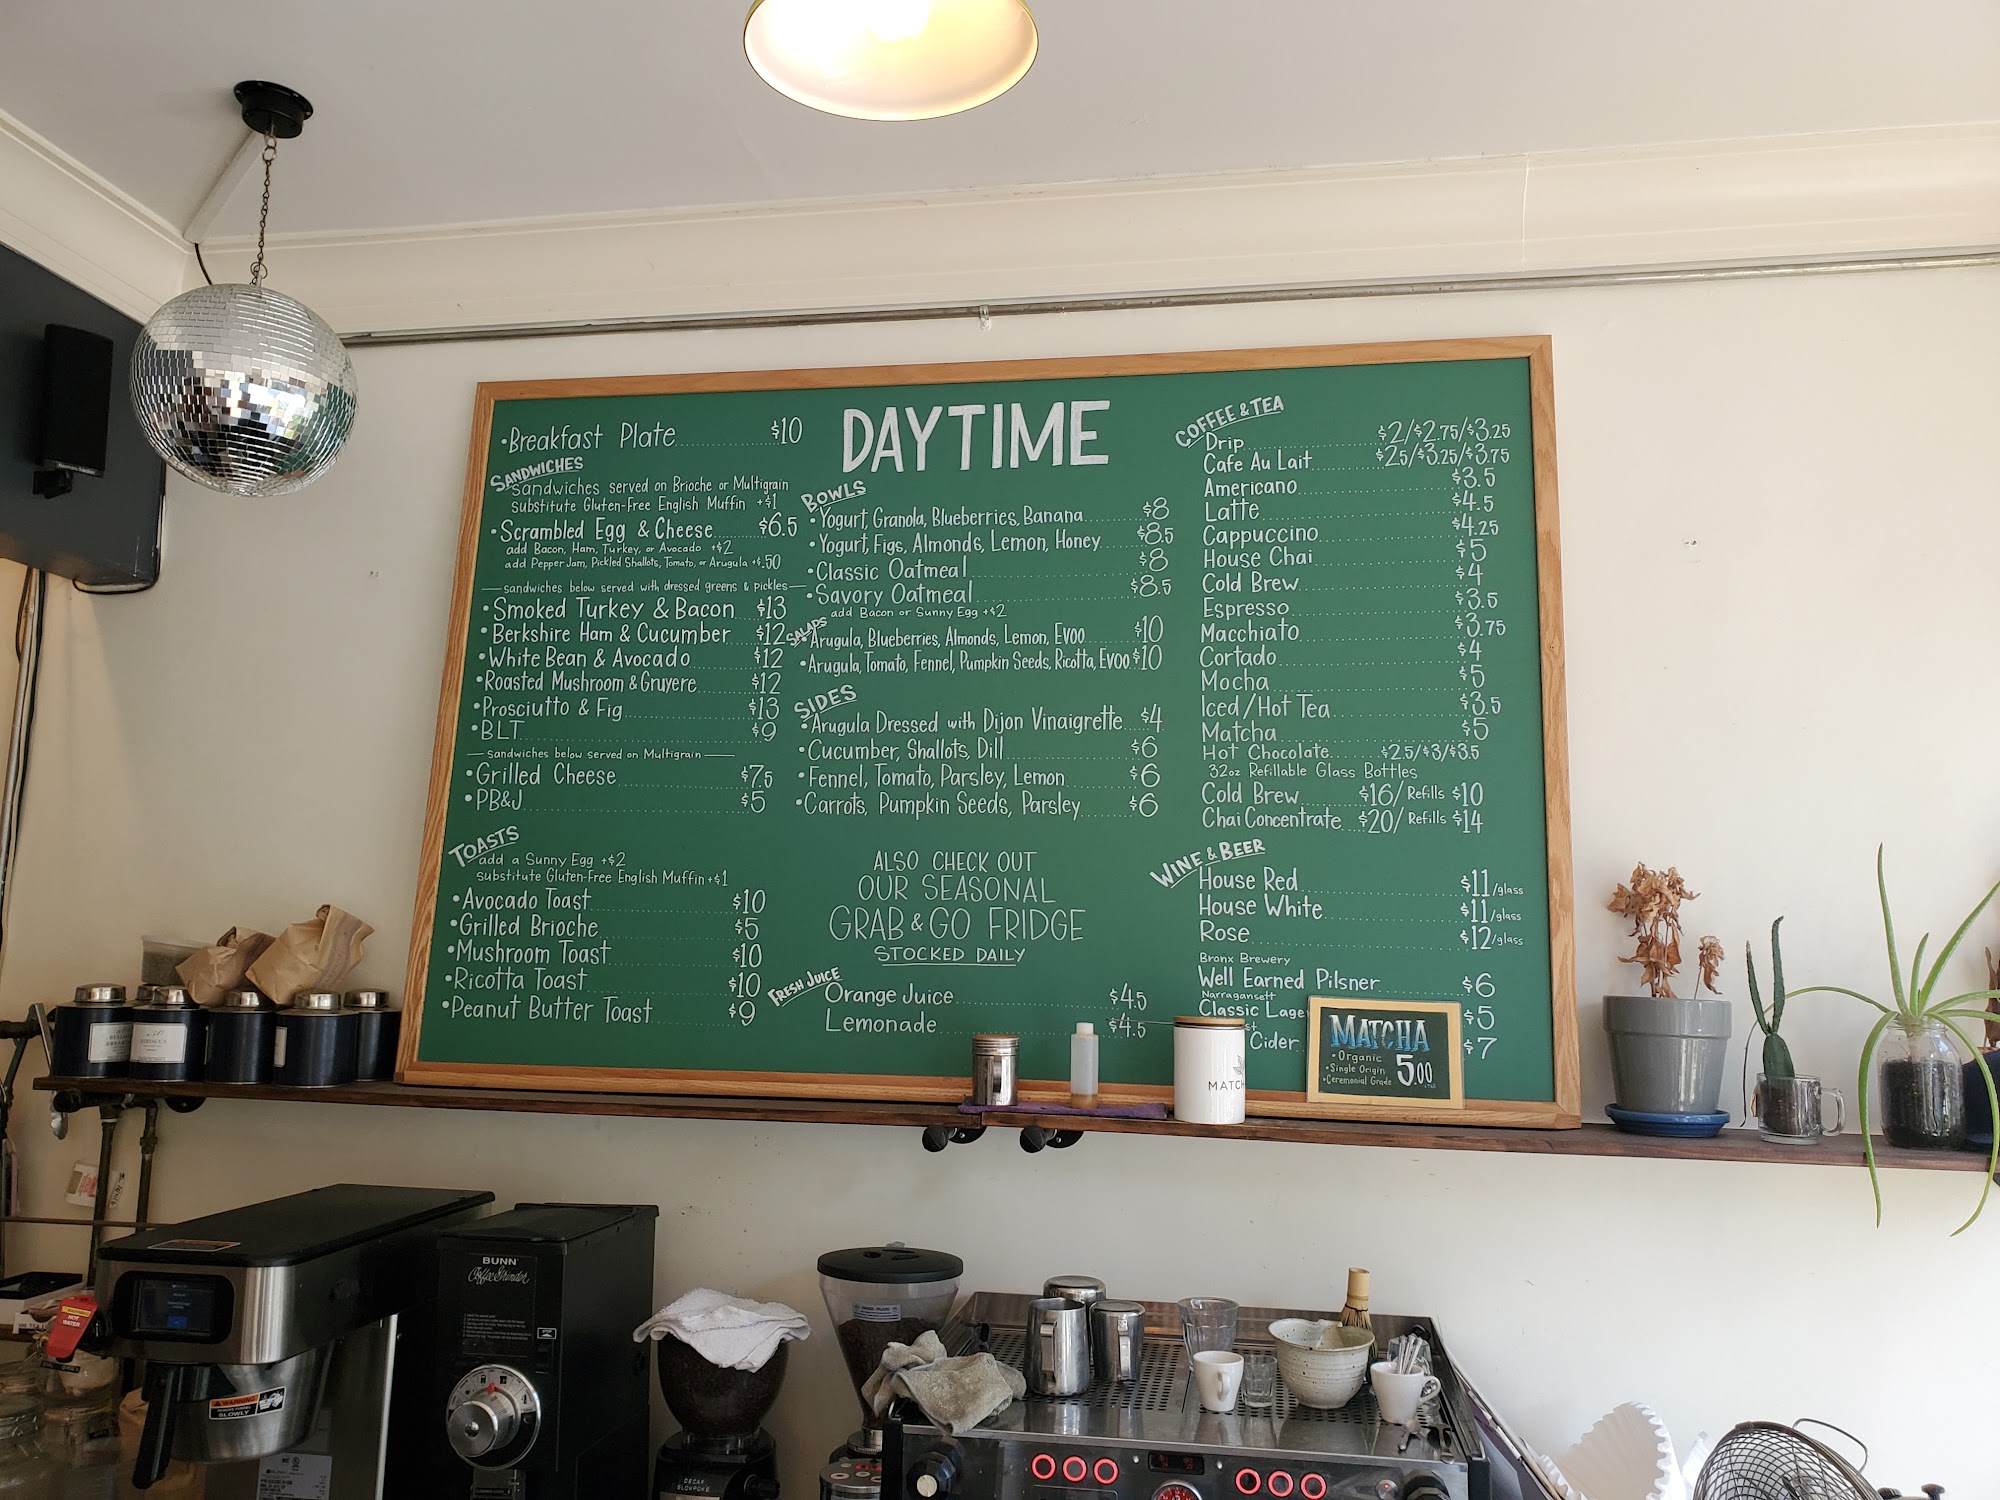 DAYTIME
•Breakfast Plate $10
SANDWICHES
Sandwiches served on Brioche or Multigrain
substitute Gluten-Free English Muffin +$1
•Scrambled Egg & Cheese $6.5
add Bacon, Ham, Turkey, or Avocado +$2
add Pepper Jam, Pickled Shallots, Tomato, or Arugula +$.50
sandwiches below served with dressed greens & pickles
•Smoked Turkey & Bacon $13
•Berkshire Ham & Cucumber $12
•White Bean & Avocado $12
•Roasted Mushroom & Gruyere $12
•Prosciutto & Fig $13
•BLT $9
sandwiches below served on Multigrain
•Grilled Cheese $7.5
•PB&J $5
TOASTS
add a Sunny Egg +$2
substitute Gluten-Free English Muffin +$1
•Avocado Toast $10
•Grilled Brioche $5
•Mushroom Toast $10
•Ricotta Toast $10
•Peanut Butter Toast $9
BOWLS
•Yogurt, Granola, Blueberries, Banana $8
•Yogurt, Figs, Almonds, Lemon, Honey $8.5
•Classic Oatmeal $8
•Savory Oatmeal $8.5
add Bacon or Sunny Egg +$2
SALADS
•Arugula, Blueberries, Almonds, Lemon, EVOO $10
•Arugula, Tomato, Fennel, Pumpkin Seeds, Ricotta, EVOO $10
SIDES
•Arugula Dressed with Dijon Vinaigrette $4
•Cucumber, Shallots, Dill $6
•Fennel, Tomato, Parsley, Lemon $6
•Carrots, Pumpkin Seeds, Parsley $6
ALSO CHECK OUT
OUR SEASONAL
GRAB & GO FRIDGE
STOCKED DAILY
FRESH JUICE
Orange Juice $4.5
Lemonade $4.5
COFFEE & TEA
Drip $2/$2.75/$3.25
Cafe Au Lait $2.5/$3.25/$3.75
Americano $3.5
Latte $4.5
Cappuccino $4.25
House Chai $5
Cold Brew $4
Espresso $3.5
Macchiato $3.75
Cortado $4
Mocha $5
Iced/Hot Tea $3.5
Matcha $5
Hot Chocolate $2.5/$3/$3.5
32oz Refillable Glass Bottles
Cold Brew $16/ Refills $10
Chai Concentrate $20/ Refills $14
WINE & BEER
House Red $11/glass
House White $11/glass
Rose $12/glass
Bronx Brewery
Well Earned Pilsner $6
Narragansett
Classic Lage $5
Cider $7
MATCHA
•Organic
•Single Origin
•Ceremonial Grade
5.00
MATCH
HIBISCUS
BUNN
Coffee Grinder
HOT WATER
WARNING
SLOWLY
DECAF
SLOWPOKE